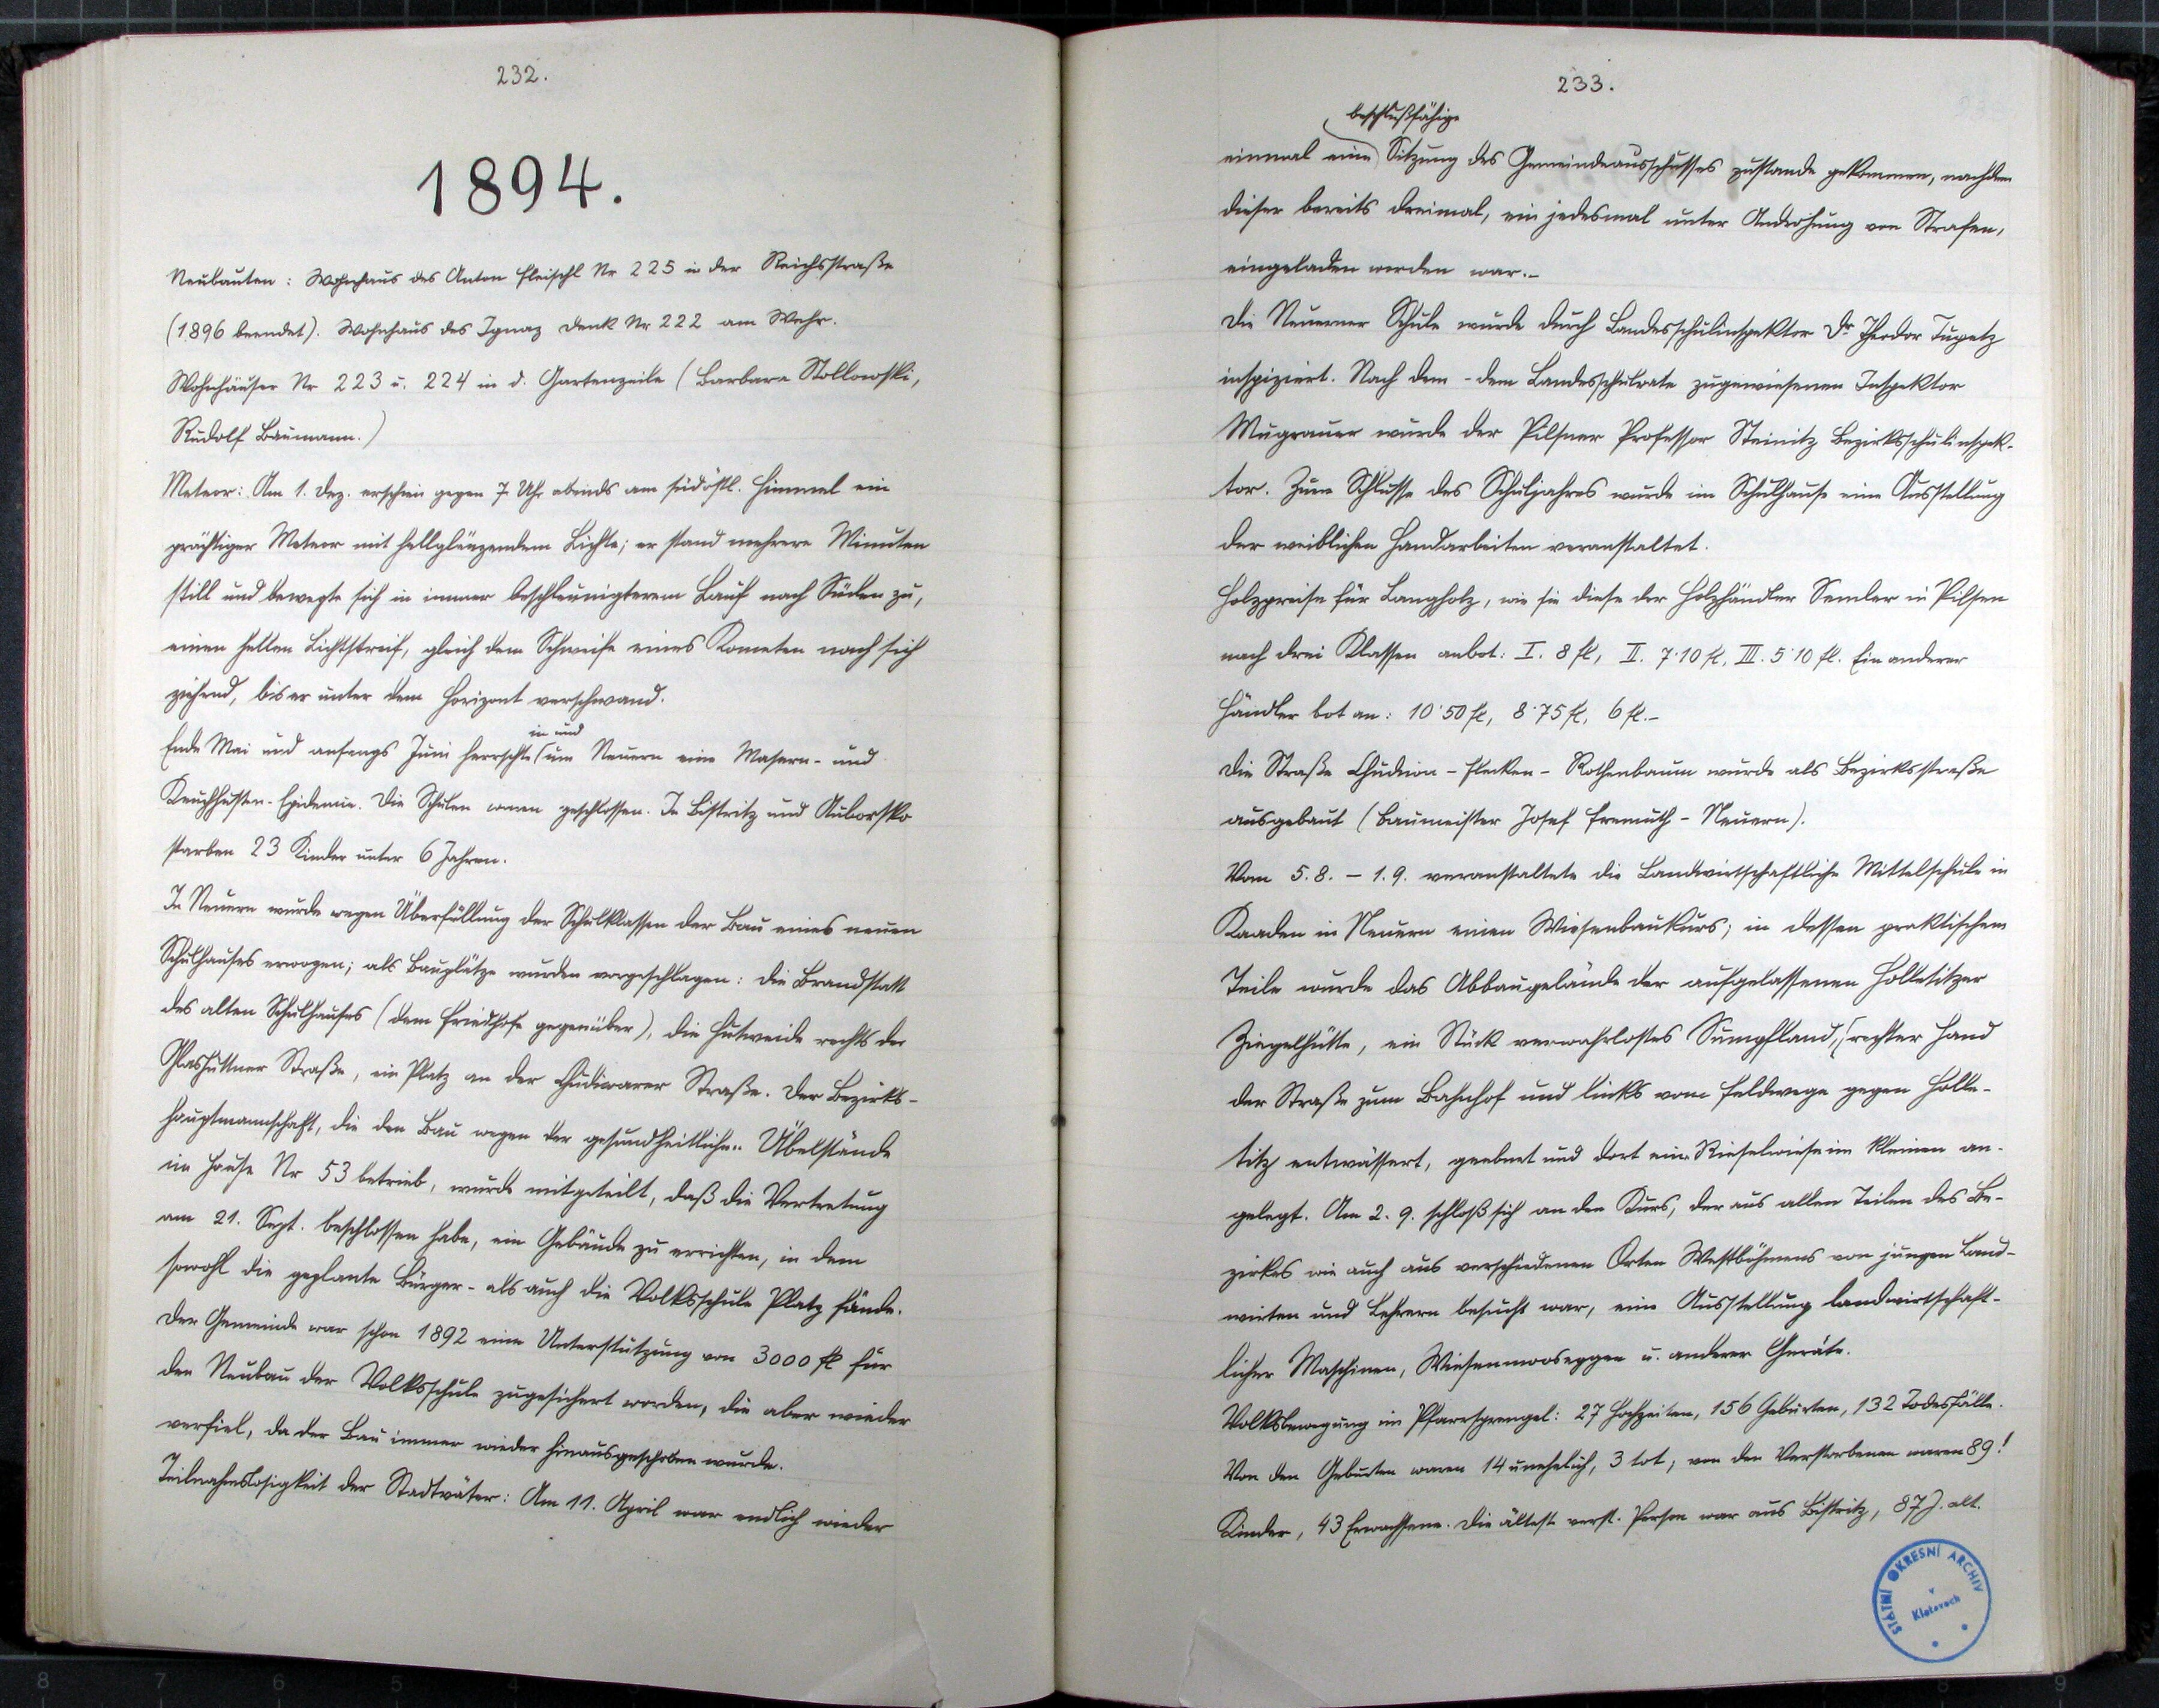 232.
1894.
Neubauten: Wohnhaus des Anton Fleischl Nr 225 in der Reichsstraße
(1896 beendet). Wohnhaus des Ignaz Denk Nr 222 am Wehr.
Wohnhäuser Nr 223 u. 224 in d. Gartenzeile (Barbara Stollowski,
Rudolf Baumann.)
Meteor: Am 1. Dez. erschien gegen 7 Uhr abends am südöstl. Himmel ein
prächtiger Meteor mit hellglänzendem Lichte; er stand mehrere Minuten
still und bewegte sich in immer beschleunigterem Lauf nach Süden zu,
einen hellen Lichtstreif, gleich dem Schweife eines Kometen nach sich
ziehend, bis er unter dem Horizont verschwand.
in und
Ende Mai und anfangs Juni herrschte (um Neuern eine Masern- und
Keuchhusten-Epidemie. Die Schulen waren geschlossen. In Bistritz und Auborsko
starben 23 Kinder unter 6 Jahren.
In Neuern wurde wegen Überfüllung der Schulklassen der Bau eines neuen
Schulhauses erwogen; als Bauplätze wurden vorgeschlagen: die Brandstatt
des alten Schulhauses (dem Friedhofe gegenüber), die Hutweide rechts der
Glashüttner Straße, ein Platz an der Chudiwarer Straße. Der Bezirks-
hauptmannschaft, die den Bau wegen der gesundheitlichen Übelstände
im Hause Nr 53 betrieb, wurde mitgeteilt, daß die Vertretung
am 21. Sept. beschlossen habe, ein Gebäude zu errichten, in dem
sowohl die geplante Bürger- als auch die Volksschule Platz fände.
Der Gemeinde war schon 1892 eine Unterstützung von 3000 fl für
den Neubau der Volksschule zugesichert worden, die aber wieder
verfiel, da der Bau immer wieder hinausgeschoben wurde.
Teilnahmslosigkeit der Stadtväter: Am 11. April war endlich wieder
233.
beschlußfähige
einmal eine Sitzung des Gemeindeausschusses zustande gekommen, nachdem
dieser bereits dreimal, ein jedesmal unter Androhung von Strafen,
eingeladen worden war.-
Die Neuerner Schule wurde durch Landesschulinspektor Dr Theodor Tupetz
inspiziert. Nach dem - dem Landesschulrate zugewiesenen Inspektor
Mugrauer wurde der Pilsner Professor Steinitz Bezirksschulinspek-
tor. Zum Schlusse des Schuljahres wurde im Schulhause eine Ausstellung
der weiblichen Handarbeiten veranstaltet.
Holzpreise für Langholz, wie sie diese der Holzhändler Semler in Pilsen
nach drei Klassen anbot: I. 8 fl, II. 7·10 fl, III. 5·10 fl. Ein anderer
Händler bot an: 10·50 fl, 8·75 fl, 6 fl.-
Die Straße Chudiwa - Flecken - Rothenbaum wurde als Bezirksstraße
ausgebaut (Baumeister Josef Fremuth - Neuern).
Vom 5.8. - 1.9. veranstaltete die Landwirtschaftliche Mittelschule in
Kaaden in Neuern einen Wiesenbaukurs; in dessen praktischem
Teile wurde das Abbaugelände der aufgelassenen Holletitzer
Ziegelhütte, ein Stück verwahrlostes Sumpfland, (rechter Hand
der Straße zum Bahnhof und links vom Feldwege gegen Holle-
titz entwässert, geebnet und dort eine Rieselwiese im kleinen an-
gelegt. Am 2.9. schloß sich an den Kurs, der aus allen Teilen des Be-
zirkes wie auch aus verschiedenen Orten Westböhmens von jungen Land-
wirten und Lehrern besucht war, eine Ausstellung landwirtschaft-
licher Maschinen, Wiesenmooseggen u. anderer Geräte.
Volksbewegung im Pfarrsprengel: 27 Hochzeiten, 156 Geburten, 132 Todesfälle.
Von den Geburten waren 14 unehelich, 3 tot; von den Verstorbenen waren 89!
Kinder, 43 Erwachsene. Die älteste verst. Person war aus Bistritz, 87 J. alt.
STÁTNÍ OKRESNÍ ARCHIV
v
Klatovech
8 7 6 5 4
8 9